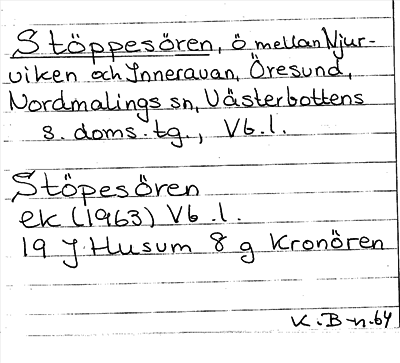 Stöppesören, ö mellan Njur-
viken och Inneravan, Öresund,
Nordmalings sn, Västerbottens
s. doms. tg., Vb. l.
Stöpesören
ek (1963) Vb. l.
19 J Husum 8 g Kronören
K. B-n. 64